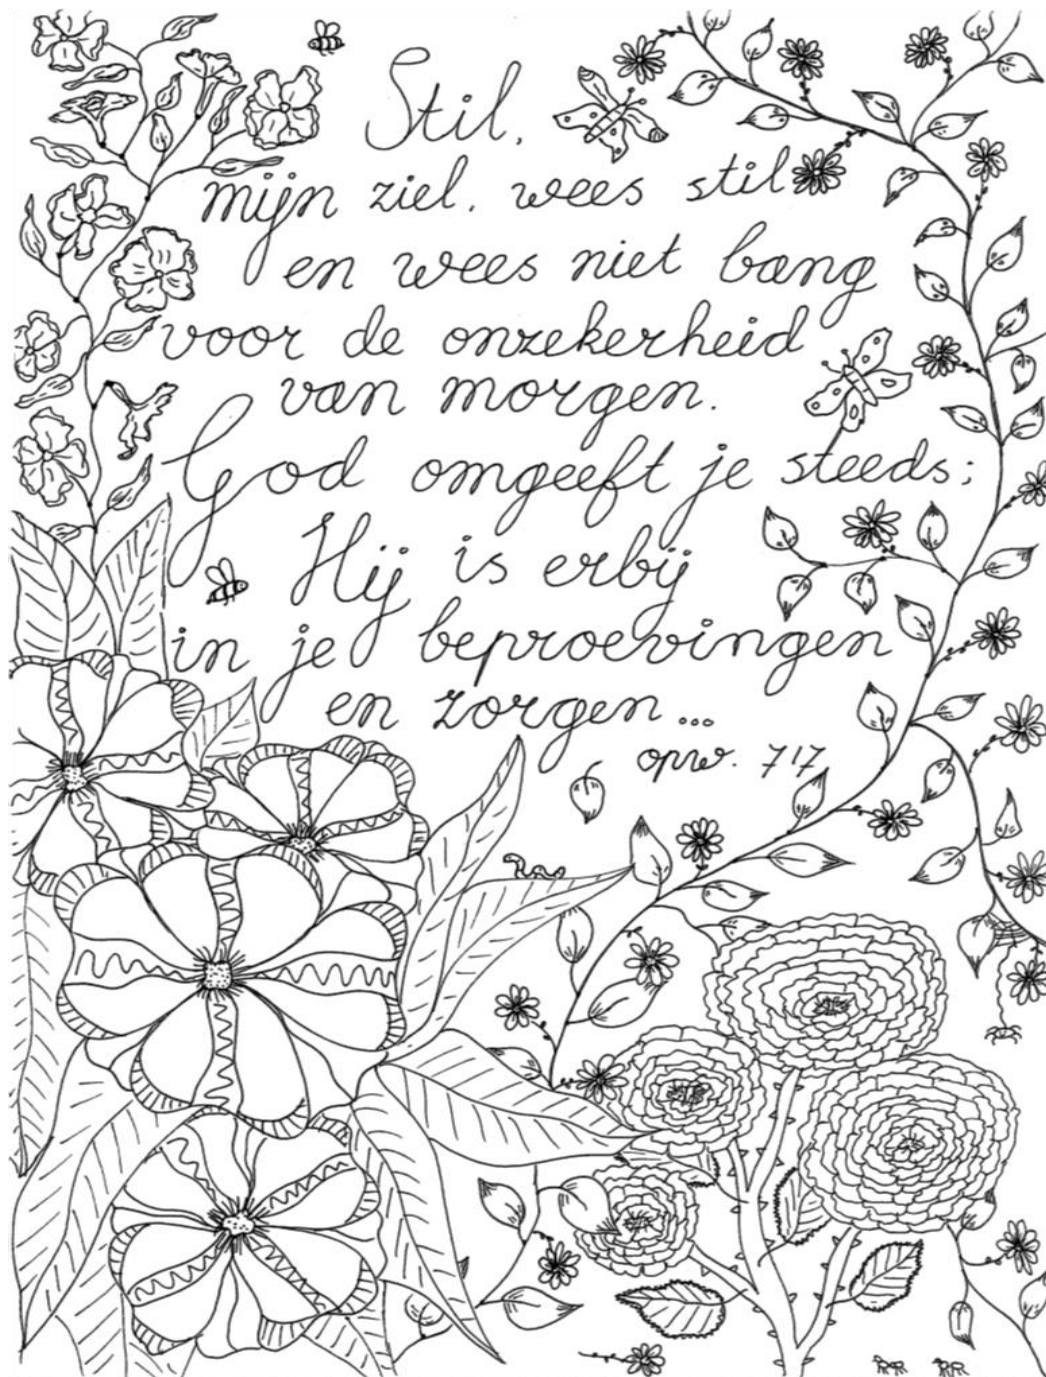 Stil,
mijn ziel, wees stil
en wees niet bang
voor de onzekerheid
van morgen.
God omgeeft je steeds;
Hij is erbij
in je beproevingen
en zorgen...
opw. 717